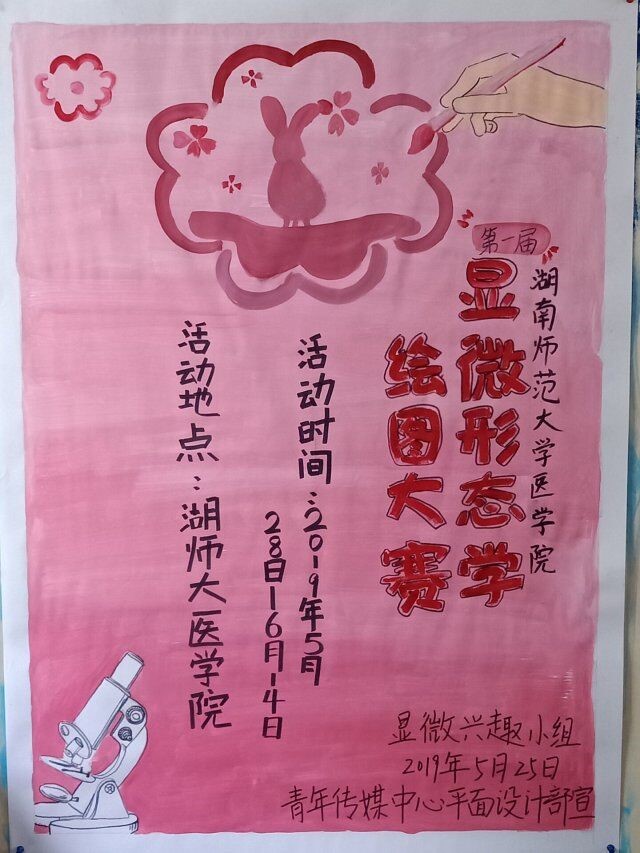 第一届
湖南师范大学医学院
显微形态学
绘图大赛
活动时间:2019年5月
28日-6月14日
活动地点:湖师大医学院
显微兴趣小组
2019年5月25日
青年传媒中心平面设计部宣